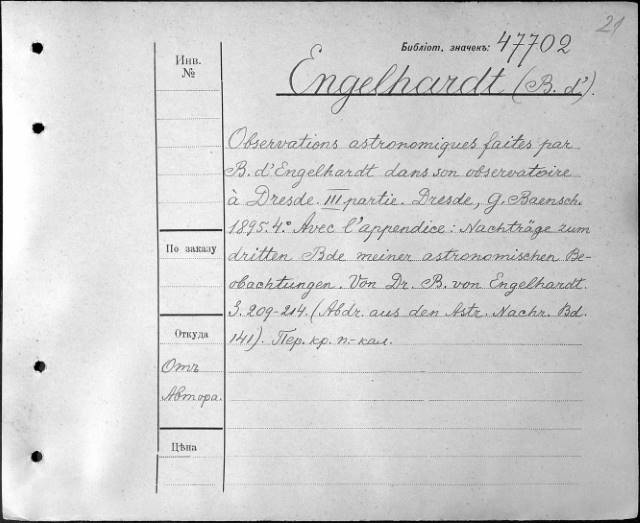 21
Библіот. значекъ: 47702
Инв.
№
Engelhardt (B. d').
Observations astronomiques faites par
B. d'Engelhardt dans son observatoire
à Dresde. III partie. Dresde, G. Baensch.
1895. 4.° Avec l'appendice: Nachträge zum
По заказу
dritten Bde meiner astronomischen Be-
obachtungen. Von Dr. B. von Engelhardt.
S. 209-214. (Abdr. aus den Astr. Nachr. Bd.
Откуда
141). Пер. кр. п.-кал.
Отъ
Автора.
Цѣна